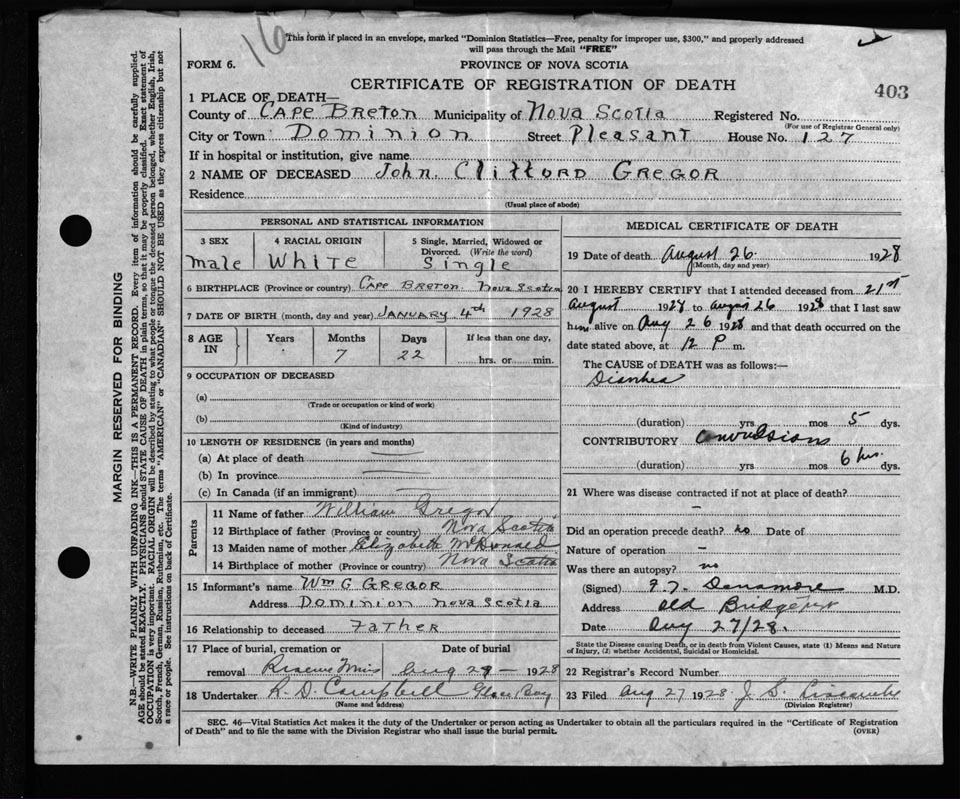 16
This form if placed in an envelope, marked "Dominion Statistics—Free, penalty for improper use, $300," and properly addressed
will pass through the Mail "FREE"
FORM 6.
PROVINCE OF NOVA SCOTIA
CERTIFICATE OF REGISTRATION OF DEATH
403
1 PLACE OF DEATH—
County of CAPE BRETON Municipality of NOVA SCOTIA Registered No.
(For use of Registrar General only)
City or Town DOMINION Street PLEASANT House No. 127
If in hospital or institution, give name
2 NAME OF DECEASED John Clifford GREGOR
Residence
(Usual place of abode)
PERSONAL AND STATISTICAL INFORMATION
3 SEX 4 RACIAL ORIGIN 5 Single, Married, Widowed or Divorced. (Write the word)
Male White Single
6 BIRTHPLACE (Province or country) CAPE BRETON NOVA SCOTIA
7 DATE OF BIRTH (month, day and year) JANUARY 4th 1928
8 AGE IN Years Months Days If less than one day,
7 22 hrs. or min.
9 OCCUPATION OF DECEASED
(a)
(Trade or occupation or kind of work)
(b)
(Kind of industry)
10 LENGTH OF RESIDENCE (in years and months)
(a) At place of death
(b) In province
(c) In Canada (if an immigrant)
Parents
11 Name of father William Gregor
12 Birthplace of father (Province or country) Nova Scotia
13 Maiden name of mother Elizabeth McDonald
14 Birthplace of mother (Province or country) Nova Scotia
15 Informant's name Wm G GREGOR
Address DOMINION NOVA SCOTIA
16 Relationship to deceased FATHER
17 Place of burial, cremation or removal Date of burial
Aug 27 — 1928
18 Undertaker R. D. Campbell Glace Bay
(Name and address)
MEDICAL CERTIFICATE OF DEATH
19 Date of death August 26 1928
(Month, day and year)
20 I HEREBY CERTIFY that I attended deceased from 21st
August 1928 to August 26 1928 that I last saw
him alive on Aug 26 1928 and that death occurred on the
date stated above, at 12 P m.
The CAUSE of DEATH was as follows:—
Diarrhea
(duration) yrs mos 5 dys.
CONTRIBUTORY Convulsions
(duration) yrs mos 6 hrs. dys.
21 Where was disease contracted if not at place of death?
–
Did an operation precede death? no Date of
Nature of operation –
Was there an autopsy? no
(Signed) M.D.
Address Old Bridgeport
Date Aug 27/28.
State the Disease causing Death, or in death from Violent Causes, state (1) Means and Nature
of Injury, (2) whether Accidental, Suicidal or Homicidal.
22 Registrar's Record Number
23 Filed Aug 27 1928 J. S.
(Division Registrar)
SEC. 46—Vital Statistics Act makes it the duty of the Undertaker or person acting as Undertaker to obtain all the particulars required in the "Certificate of Registration
of Death" and to file the same with the Division Registrar who shall issue the burial permit.
(OVER)
MARGIN RESERVED FOR BINDING
N.B.—WRITE PLAINLY WITH UNFADING INK—THIS IS A PERMANENT RECORD. Every item of information should be carefully supplied.
AGE should be stated EXACTLY. PHYSICIANS should STATE CAUSE OF DEATH in plain terms, so that it may be properly classified. Exact statement of
OCCUPATION is very important. RACIAL ORIGIN will be described by stating to what people or tongue the deceased person belonged, whether English, Irish,
Scotch, French, German, Russian, Ruthenian, etc. The terms "AMERICAN" or "CANADIAN" SHOULD NOT BE USED as they express citizenship but not
a race or people. See instructions on back of Certificate.